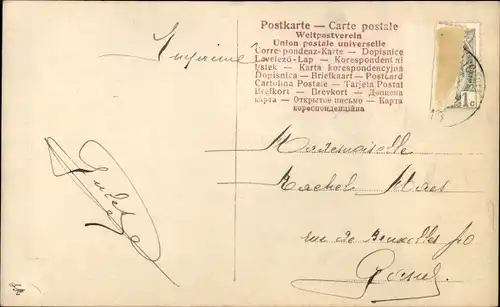 Postkarte — Carte postale
Weltpostverein
Union postale universelle
Correspondenz-Karte — Dopisnice
Levelező-Lap — Korespondentni
listek — Karta korespondencyjna
Dopisnica — Briefkaart — Postcard
Cartolina Postale — Tarjeta Postal
Brefkort — Brevkort — Дописна
карта — Открытое письмо — Карта
кореспонденційна
1c
Imprimé
Mademoiselle
Rachel Maes
rue de Bruxelles